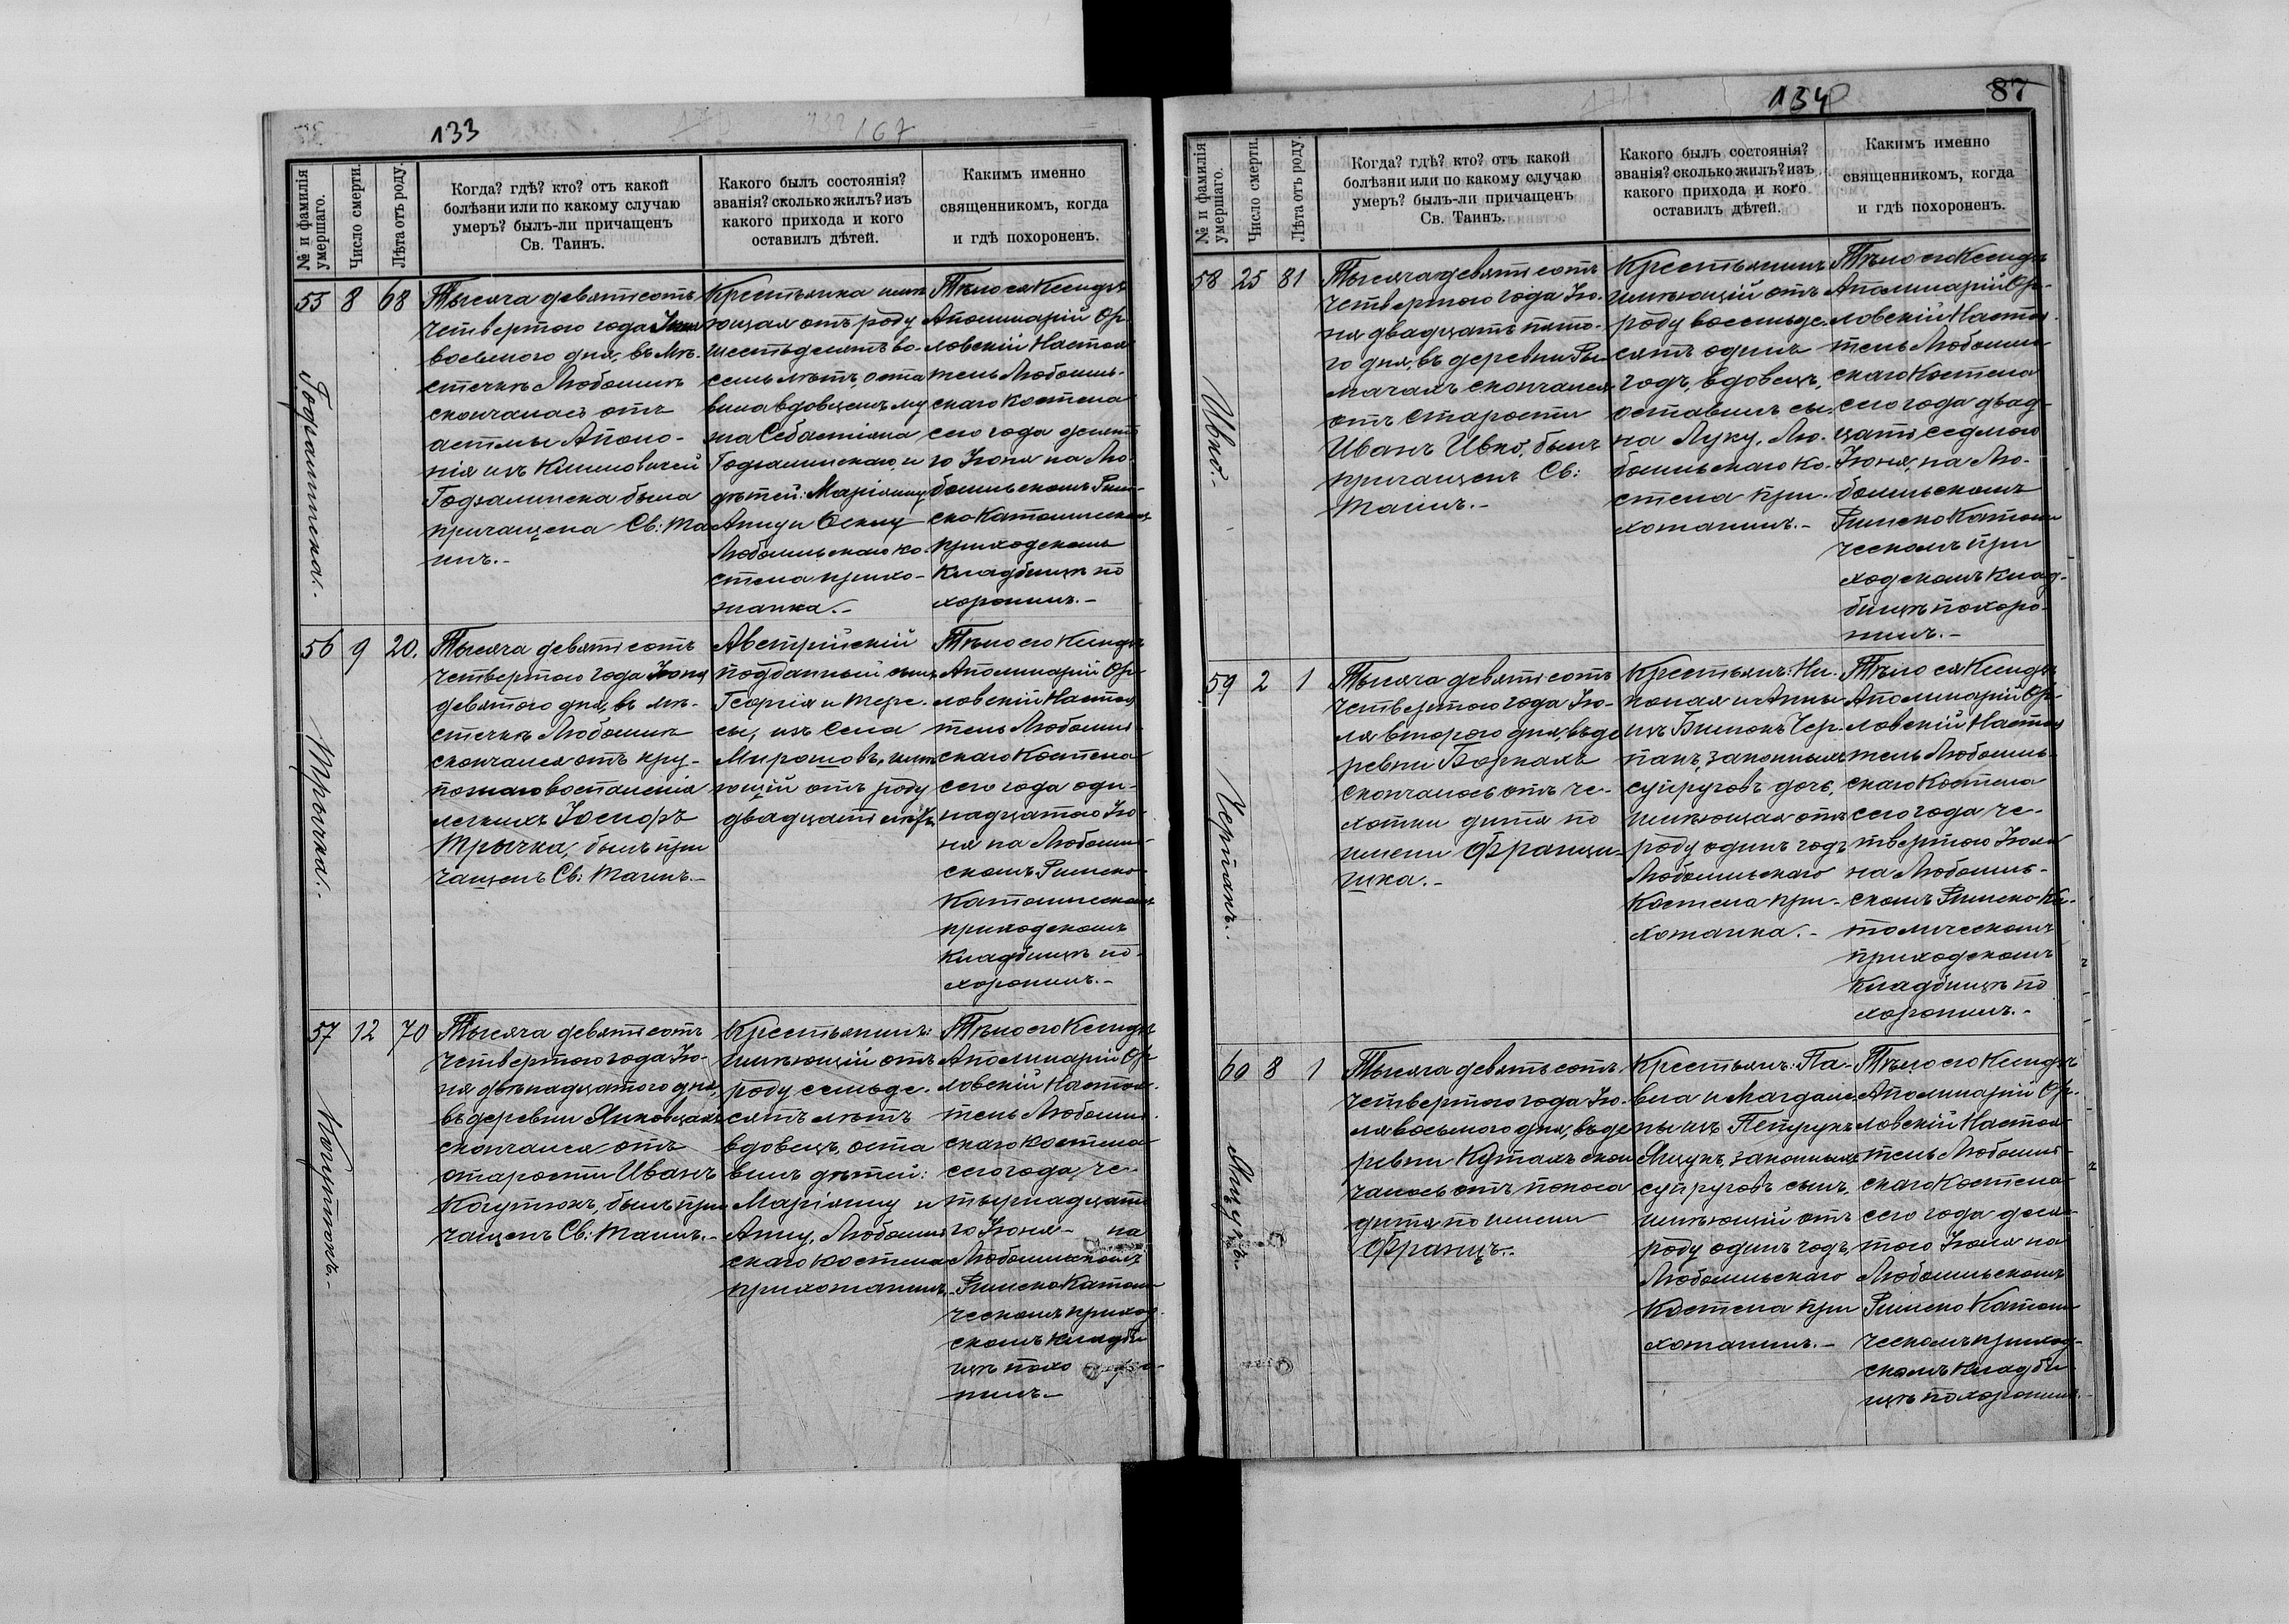 133
167
№ и фамилія умершаго.
Число смерти.
Лѣта отъ роду.
Когда? гдѣ? кто? отъ какой
болѣзни или по какому случаю
умеръ? былъ-ли причащенъ
Св. Таинъ.
Какого былъ состоянія?
званія? сколько жилъ? изъ
какого прихода и кого
оставилъ дѣтей.
Какимъ именно
священникомъ, когда
и гдѣ похороненъ.
55
Годзалинска.
8
68
Тысяча девятьсотъ
четвертого года Іюня
восьмого дня, въ мѣ-
стечкѣ Любомлѣ
скончалась отъ
астмы Аполо-
нія изъ
Годзалинска была
причащена Св: Та
инъ.-
Крестьянка имѣ
ющая отъ роду
шестьдесятъ во-
семь лѣтъ оста
вила вдовцемъ му
жа Себастіяна
Годзалинскаго, и
дѣтей: Маріянну
Анну и
Любомльскаго ко-
стела прихо-
жанка.-
Тѣло ея Ксендзъ
Аполинарій Ор-
ловскій Настоя
тель Любомль-
скаго Костела
сего года десято
го Іюня на Лю-
бомльскомъ Рим-
ско Католическомъ
приходскомъ
Кладбищѣ по
хоронилъ.-
56
Трычка.
9
20.
Тысяча девятьсотъ
четвертого года Іюня
девятого дня, въ мѣ-
стечкѣ Любомлѣ
скончался отъ кру-
познаго воспаленія
легкихъ Іосифъ
Трычка, былъ при
чащенъ Св: Таинъ.-
Австрійскій
подданный сынъ
Георгія и Тере-
сы, изъ села
Мирошовъ, имѣ
ющій отъ роду
двадцать лѣтъ
Тѣло его Ксендзъ
Аполинарій Ор-
ловскій Настоя
тель Любомль-
скаго Костела
сего года оди-
надцатого Ію-
ня на Любомль-
скомъ Римско-
Католическомъ
приходскомъ
Кладбищѣ по-
хоронилъ.-
57
Когутюкъ.-
12
70
Тысяча девятьсотъ
четвертого года Ію-
ня двѣнадцатого дня,
въ деревни Янковцахъ
скончался отъ
старости Иванъ
Когутюкъ, былъ при
чащенъ Св: Таинъ.-
Крестьянинъ:
имѣющій отъ
роду семьде-
сятъ лѣтъ
вдовецъ, оста
вилъ дѣтей:
Маріянну и
Анну, Любомль
скаго костела
прихожанинъ.-
Тѣло его Ксендзъ
Аполинарій Ор-
ловскій Настоя-
тель Любомль-
скаго Костела
сего года, че-
тырнадцато
го Іюня на
Любомльскомъ
Римско Катали
ческомъ приход-
скомъ кладби
щѣ похо ро-
нилъ.-
134
87
№ и фамилія умершаго.
Число смерти.
Лѣта отъ роду.
Когда? гдѣ? кто? отъ какой
болѣзни или по какому случаю
умеръ? былъ-ли причащенъ
Св. Таинъ.
Какого былъ состоянія?
званія? сколько жилъ? изъ
какого прихода и кого
оставилъ дѣтей.
Какимъ именно
священникомъ, когда
и гдѣ похороненъ.
58
Ивко.
25
81
Тысяча девятьсотъ
четвертого года Ію-
ня двадцать пято-
го дня, въ деревни Ры-
мачахъ скончался
отъ Старости
Иванъ Ивко, былъ
причащенъ Св:
Таинъ.-
Крестьянинъ
имѣющій отъ
роду восемьде-
сятъ одинъ
годъ, вдовецъ,
оставилъ сы-
на Луку, Лю-
бомльскаго ко-
стела при-
хожанинъ.-
Тѣло его Ксендзъ
Аполинарій Ор-
ловскій Настоя-
тель Любомль
скаго Костела
сего года двад-
цать седмого
Іюня, на Лю-
бомльскомъ
Римско Католи
ческомъ при
ходскомъ Клад-
бищѣ похоро-
нилъ.-
59
Черпакъ.
2
1
Тысяча девятьсотъ
четвертого года Ію-
ля второго дня, въ де
ревни Боркахъ
скончалось отъ че-
хотки дитя по
имени Франци-
шка.-
Крестьянъ: Ни-
колая и Анны
изъ Чер-
пакъ, законныхъ
супруговъ дочь,
имѣющая отъ
роду одинъ годъ
Любомльскаго
Костела при-
хожанка.-
Тѣло ея Ксендзъ
Аполинарій Ор-
ловскій Настоя
тель Любомль-
скаго Костела
сего года че-
твертого Іюля
на Любомль-
скомъ Римско-Ка-
толическомъ
приходскомъ
Кладбищѣ по
хоронилъ.-
60
8
1
Тысяча девятьсотъ
четвертого года Ію-
ля восьмого дня, въ де
ревни скон
чалось отъ поноса
дитя по имени
Францъ.-
Крестьянъ: Па-
вла и Магдале
ны изъ Петрукъ
законныхъ
супруговъ сынъ,
имѣющій отъ
роду одинъ годъ,
Любомльскаго
Костела при
хожанинъ.-
Тѣло его Ксендзъ
Аполинарій Ор-
ловскій Настоя-
тель Любомль-
скаго Костела
сего года деся-
того Іюля на
Любомльскомъ
Римско Католи
ческомъ приход-
скомъ Кладби
щѣ похоронилъ.-